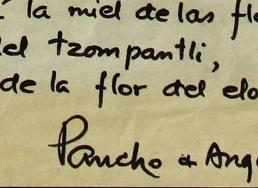 la miel de las
del tzompantli,
de la flor del
Pancho &